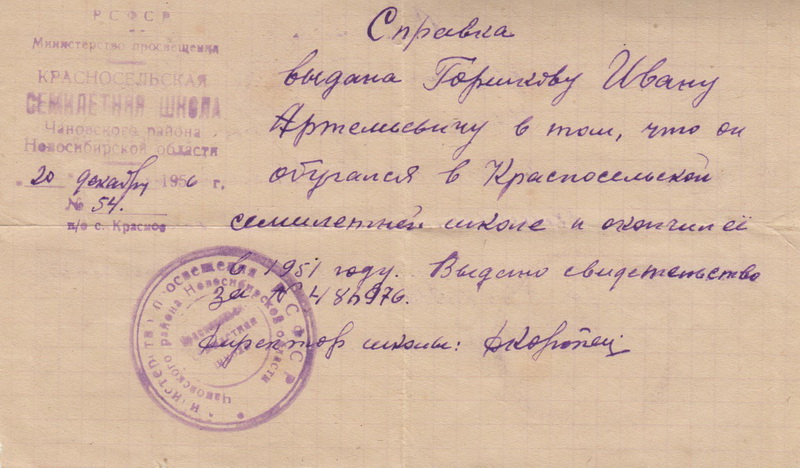 РСФСР
Министерство просвещения
КРАСНОСЕЛЬСКАЯ
СЕМИЛЕТНЯЯ ШКОЛА
Чановского района
Новосибирской области
"20" декабря 1956 г.
№ 54.
п/о с. Красное
Справка
выдана Горшкову Ивану
Артемьевичу в том, что он
обучался в Красносельской
семилетней школе и окончил её
в 1951 году. Выдано свидетельство
за №
Директор школы:
Министерство просвещения РСФСР
Чановского района Новосибирской области
Красносельская
семилетняя
школа